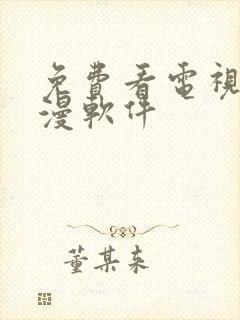 免費看電視
漫軟件
董某永